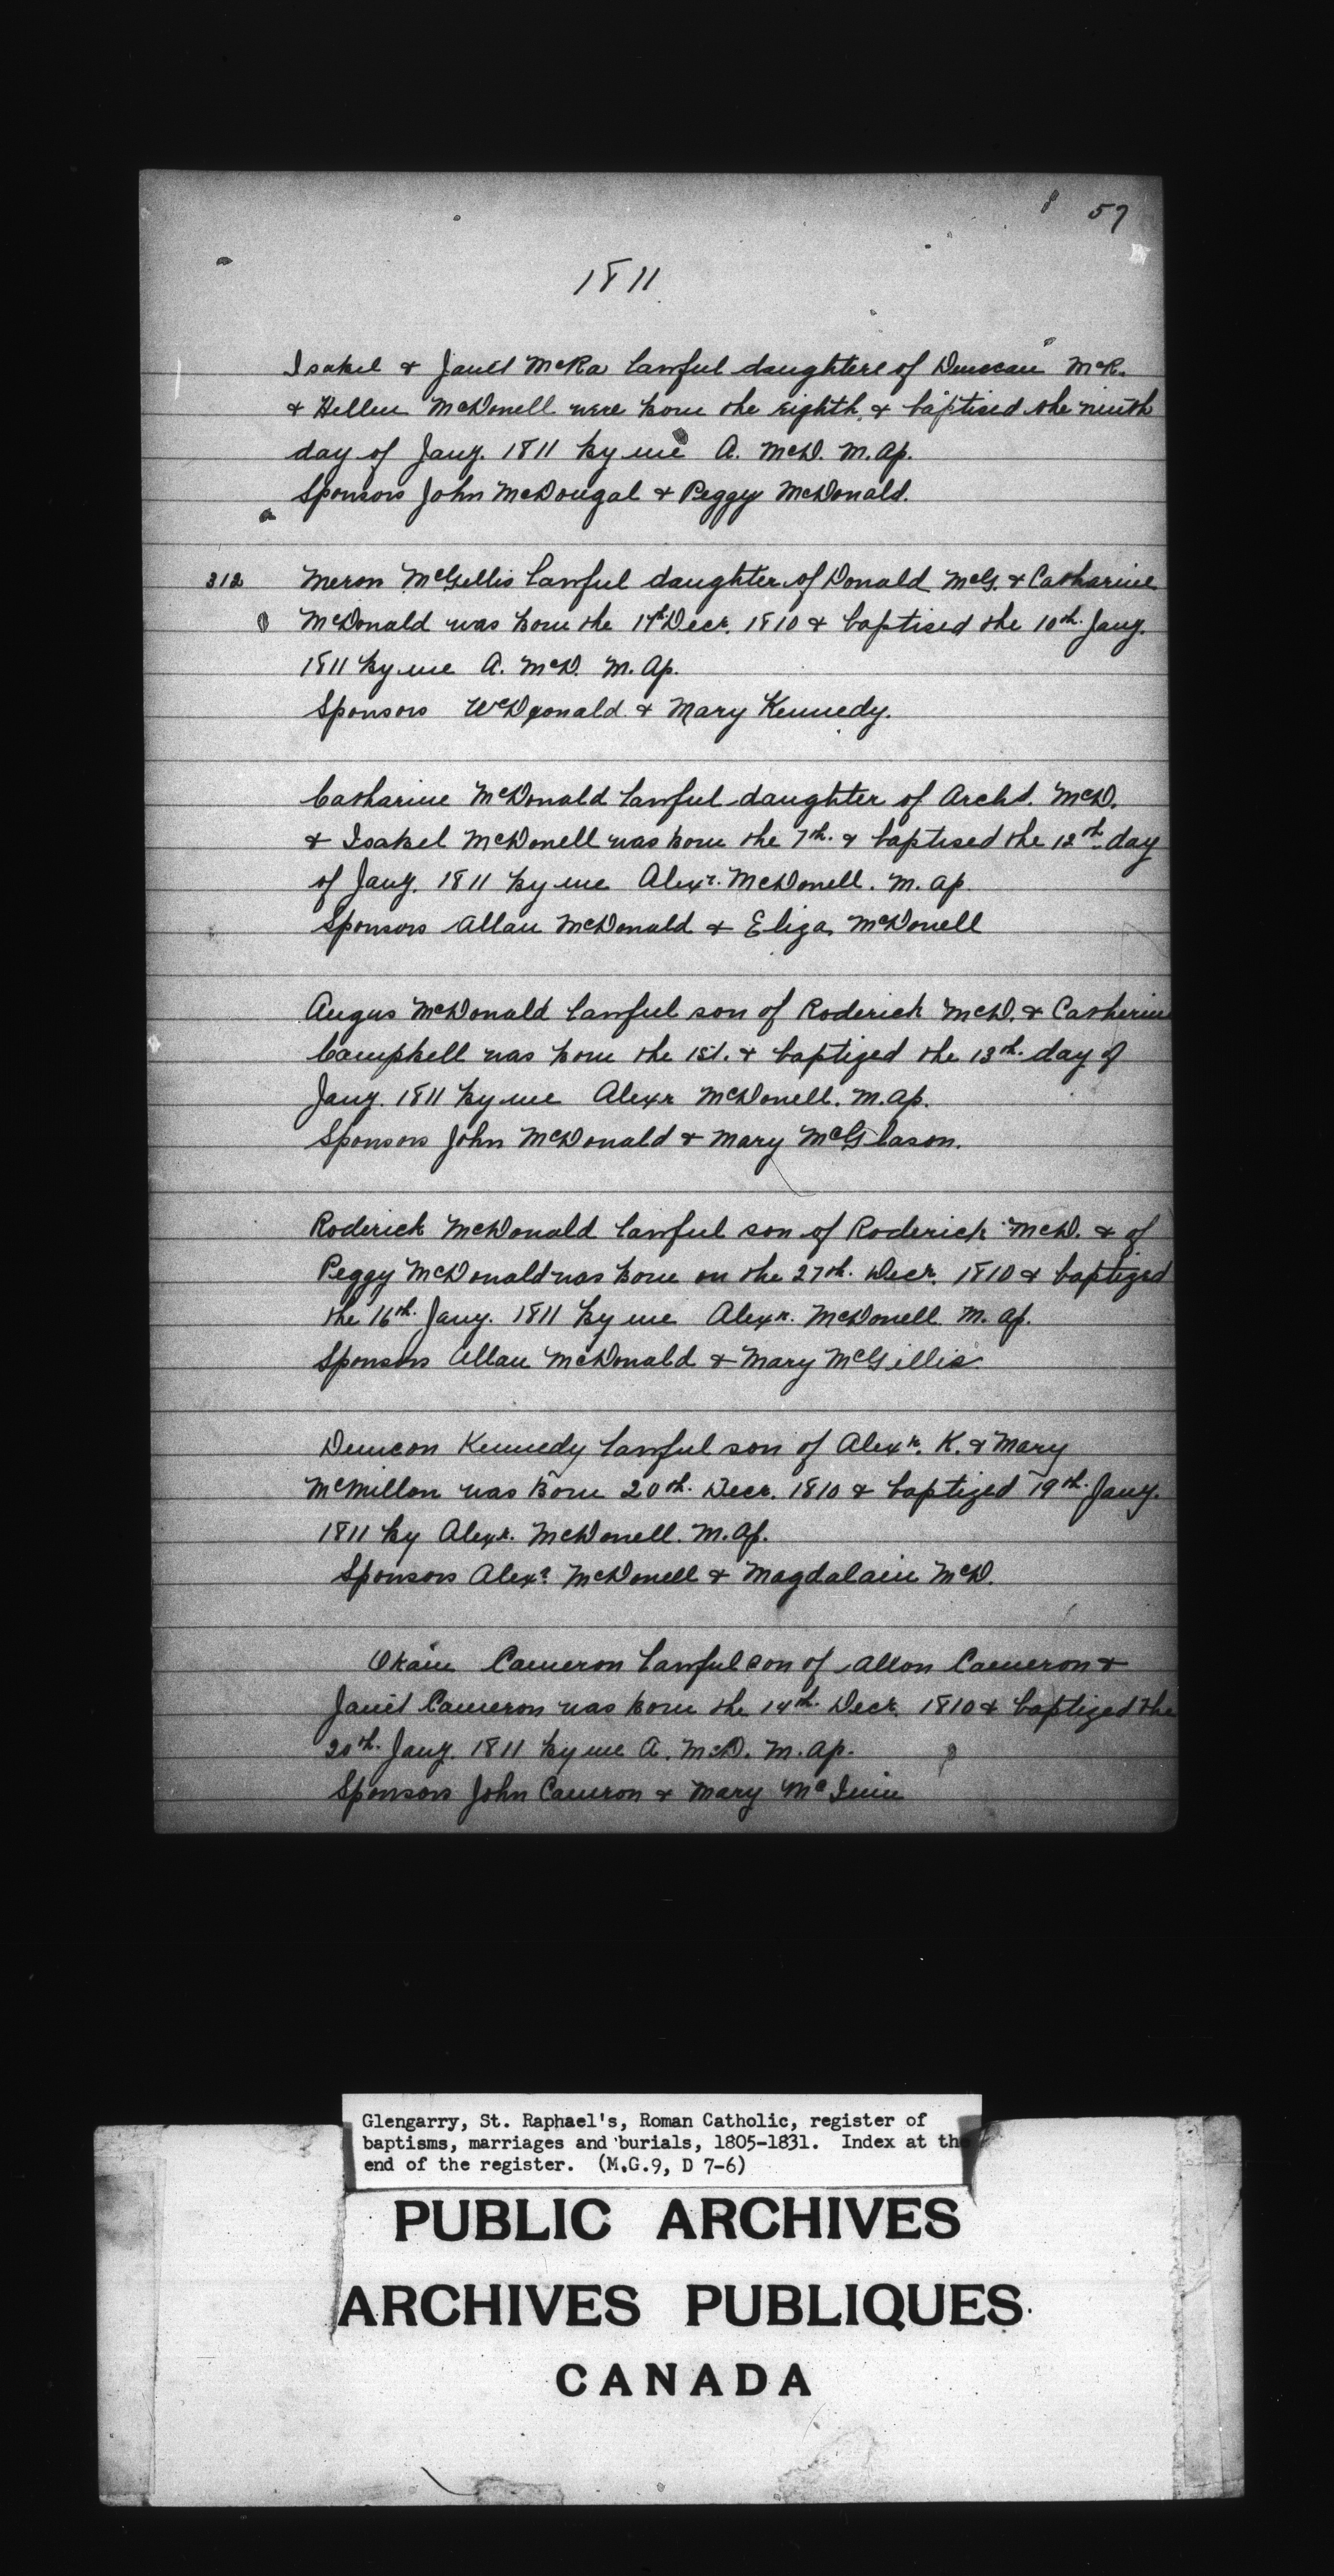 57
1811
Isabel & Janet McRa lawful daughters of Duncan McR.
& Hellen McDonell were born the eighth & baptised the ninth
day of Jany. 1811 by me A. McD. M. Ap.
Sponsors John McDougal & Peggy McDonald.
312 Meron McGillis lawful daughter of Donald McG. & Catharine
McDonald was born the Decr. 1810 & baptised the 10th. Jany.
1811 by me A. McD. M. Ap.
Sponsors & Mary Kennedy.
Catharine McDonald lawful daughter of Archd. McD.
& Isabel McDonell was born the 7th. & baptised the 12th. day
of Jany. 1811 by me Alexr. McDonell. M. Ap.
Sponsors Allan McDonald & Eliza McDonell
Angus McDonald lawful son of Roderick McD. & Catherine
Campbell was born the 1st. & baptized the 13th. day of
Jany. 1811 by me Alexr McDonell. M. Ap.
Sponsors John McDonald & Mary McGlason.
Roderick McDonald lawful son of Roderick McD. & of
Peggy McDonald was born on the 27th. Decr. 1810 & baptized
the 16th. Jany. 1811 by me Alexr. McDonell M. Ap.
Sponsors Allan McDonald & Mary McGillis.
Duncon Kennedy lawful son of Alexr. K. & Mary
McMillon was born 20th. Decr. 1810 & baptized 19th. Jany.
1811 by Alexr. McDonell. M. Ap.
Sponsors Alexr McDonell & Magdalain McD.
Cameron lawful son of Allon Cameron &
Janet Cameron was born the 14th. Decr. 1810 & baptized the
20th. Jany. 1811 by me A. McD. M. Ap.
Sponsors John Cameron & Mary
Glengarry, St. Raphael's, Roman Catholic, register of
baptisms, marriages and burials, 1805-1831. Index at the
end of the register. (M.G.9, D 7-6)
PUBLIC ARCHIVES
ARCHIVES PUBLIQUES
CANADA